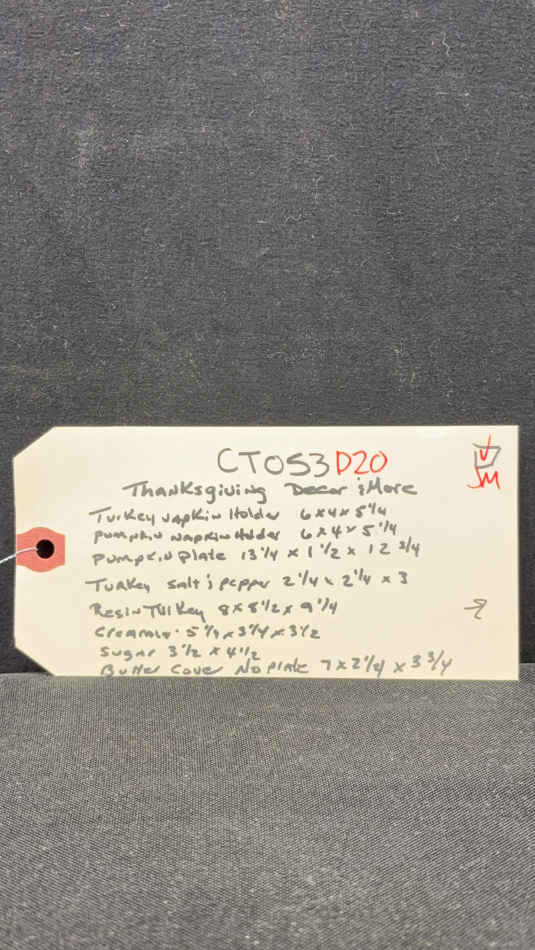 CTOS3 D20
Thanksgiving Decor & More
Turkey Napkin Holder 6x4x5 1/4
Pumpkin Napkin Holder 6x4x5 1/4
Pumpkin Plate 13 1/4 x 1 1/2 x 12 3/4
Turkey Salt & pepper 2 1/4 x 2 1/4 x 3
Resin Turkey 8x8 1/2x9 1/4
Creamer 5 1/4x3 1/4x3 1/2
Sugar 3 1/2 x 4 1/2
Butter Cover No Plate 7x2 1/4 x 3 3/4
JM